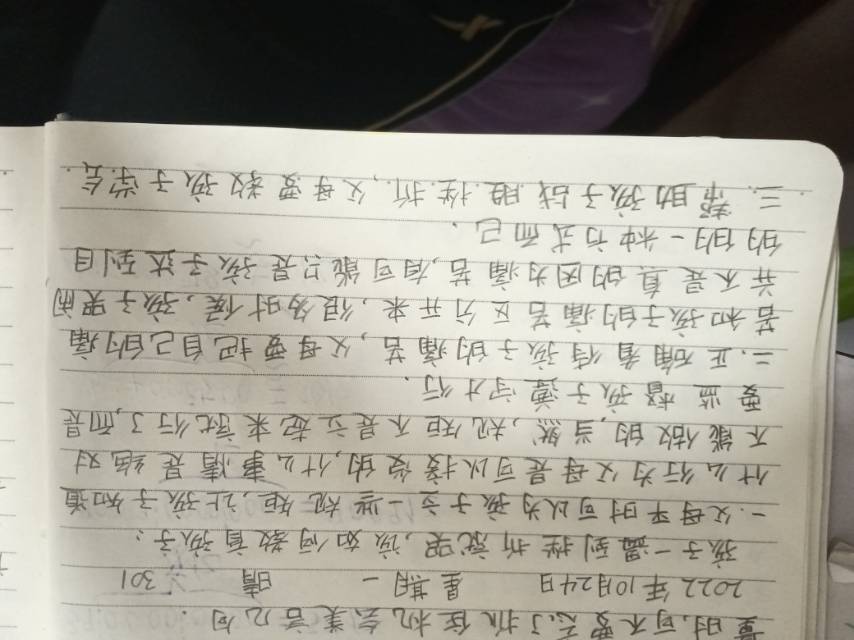 量时,可不要忘了抓住机会美言几句.
2022年10月24日 星期一 晴 301
孩子一遇到挫折就哭,该如何教育孩子:
一.父母平时可以为孩子立一些规矩,让孩子知道
什么行为父母是可以接受的,什么事情是绝对
不能做的,当然,规矩不是立起来就行了,而是
要监督孩子遵守才行.
二.正确看待孩子的痛苦,父母要把自己的痛
苦和孩子的痛苦区分开来,很多时候,孩子哭闹
并不是真的因为痛苦,有可能只是孩子达到目
的的一种方式而已.
三.帮助孩子战胜挫折,父母要教孩子学会